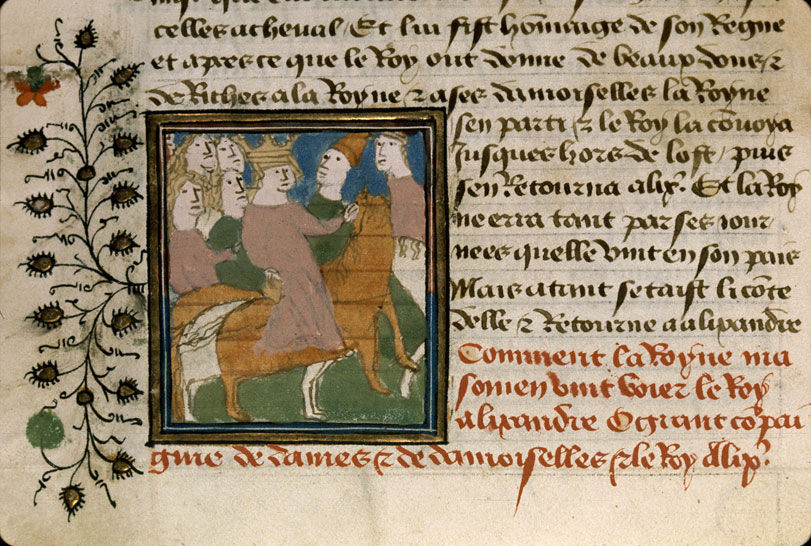 celles a cheval / Et lui fist hommaige de son Regne
et apres ce que le Roy out donne de beaup dons / ⁊
de Riches a la Royne ⁊ a ses damoiselles la Royne
sen parti ⁊ le Roy la cōvoya
Jusques hors de lost / puis
sen Retourna alix̄. Et la Roy
ne erra tant par ses iour
nees quelle vint en son pais
Mais atant se taist li cōte
delle ⁊ Retourne a alixandre
Comment la Royne ma
somen vint voier le Roy
alixandre O grant cōpai
gnie de dames ⁊ de damoiselles ⁊ le Roy Alix̄.